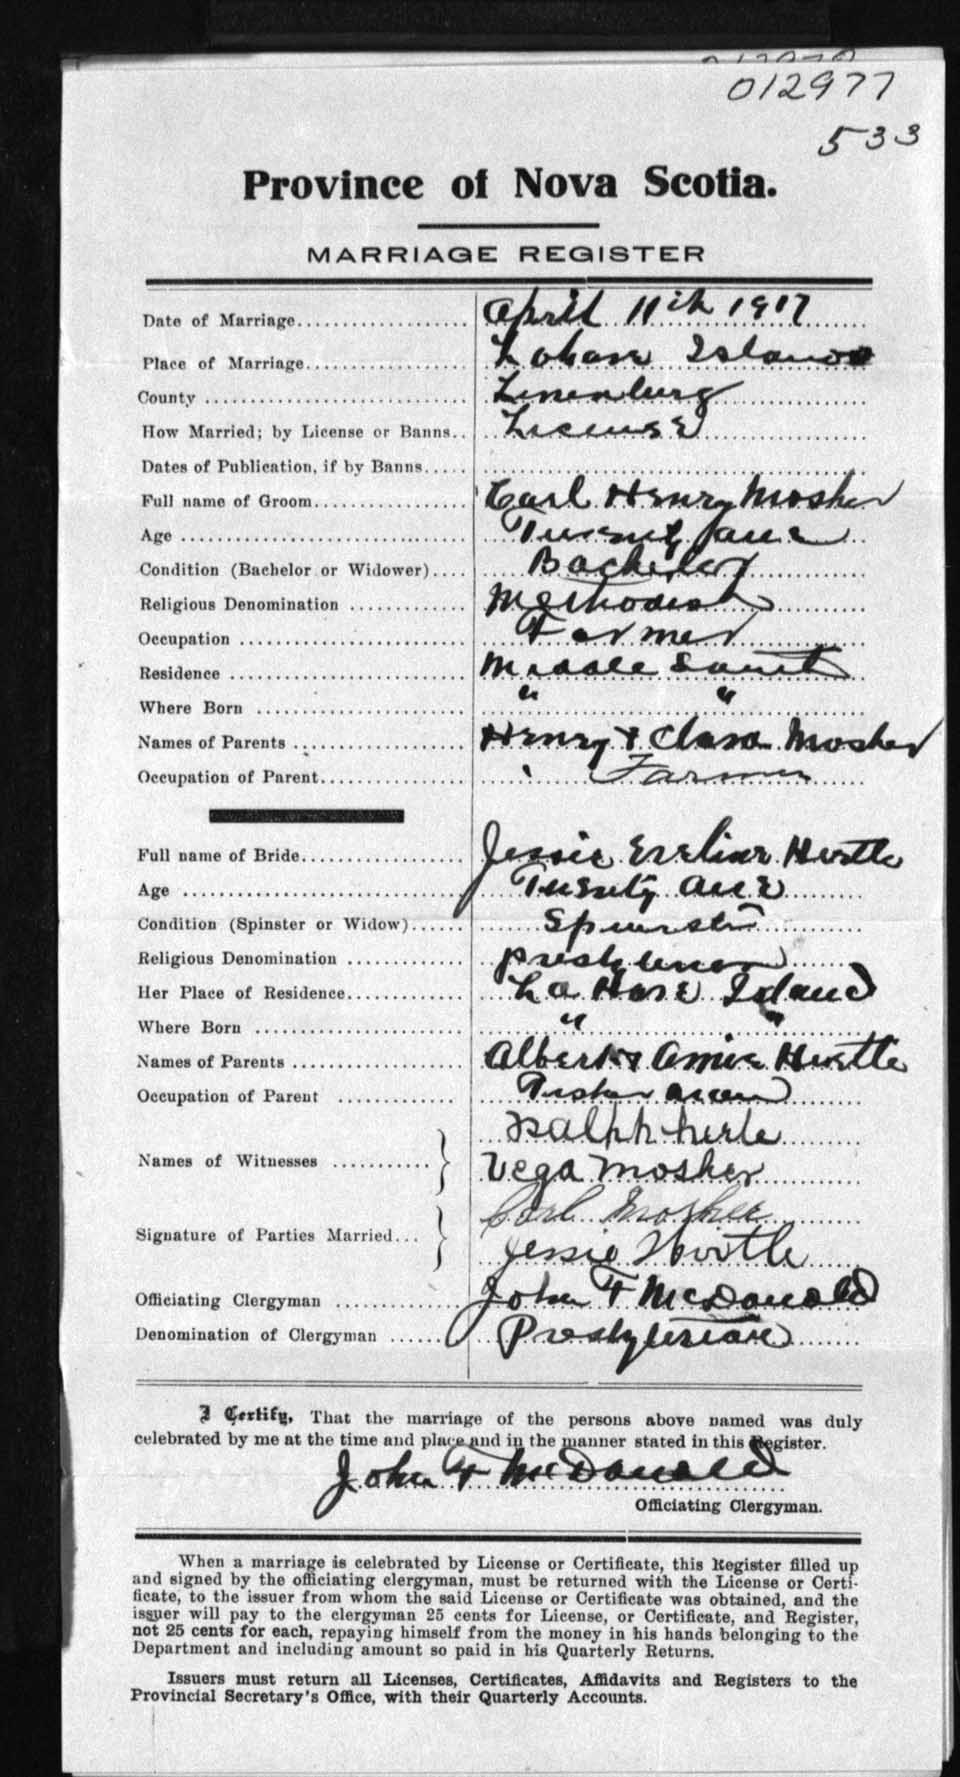 012977
533
Province of Nova Scotia.
MARRIAGE REGISTER
Date of Marriage.................. April 11th 1917
Place of Marriage.................. Lahave Island
County .......................... Lunenburg
How Married; by License or Banns.. License
Dates of Publication, if by Banns.....
Full name of Groom................ Carl Henry Mosher
Age ............................. Twenty
Condition (Bachelor or Widower).... Bachelor
Religious Denomination ............ Methodist
Occupation ....................... Farmer
Residence ........................ Middle
Where Born ..................... " "
Names of Parents ................. Henry & Clara Mosher
Occupation of Parent............... Farmer
Full name of Bride................ Jessie Eveline Hirtle
Age ............................ Twenty one
Condition (Spinster or Widow)...... Spinster
Religious Denomination ............ Presbyterian
Her Place of Residence............. La Have Island
Where Born ..................... " "
Names of Parents ................. Albert & Annie Hirtle
Occupation of Parent ............ Fisherman
Ralph
Names of Witnesses ........... } Vega Mosher
Carl Mosher
Signature of Parties Married... } Jessie Hirtle
Officiating Clergyman ............ John F McDonald
Denomination of Clergyman ...... Presbyterian
I Certify, That the marriage of the persons above named was duly
celebrated by me at the time and place and in the manner stated in this Register.
John F McDonald
Officiating Clergyman.
When a marriage is celebrated by License or Certificate, this Register filled up
and signed by the officiating clergyman, must be returned with the License or Certi-
ficate, to the issuer from whom the said License or Certificate was obtained, and the
issuer will pay to the clergyman 25 cents for License, or Certificate, and Register,
not 25 cents for each, repaying himself from the money in his hands belonging to the
Department and including amount so paid in his Quarterly Returns.
Issuers must return all Licenses, Certificates, Affidavits and Registers to the
Provincial Secretary's Office, with their Quarterly Accounts.